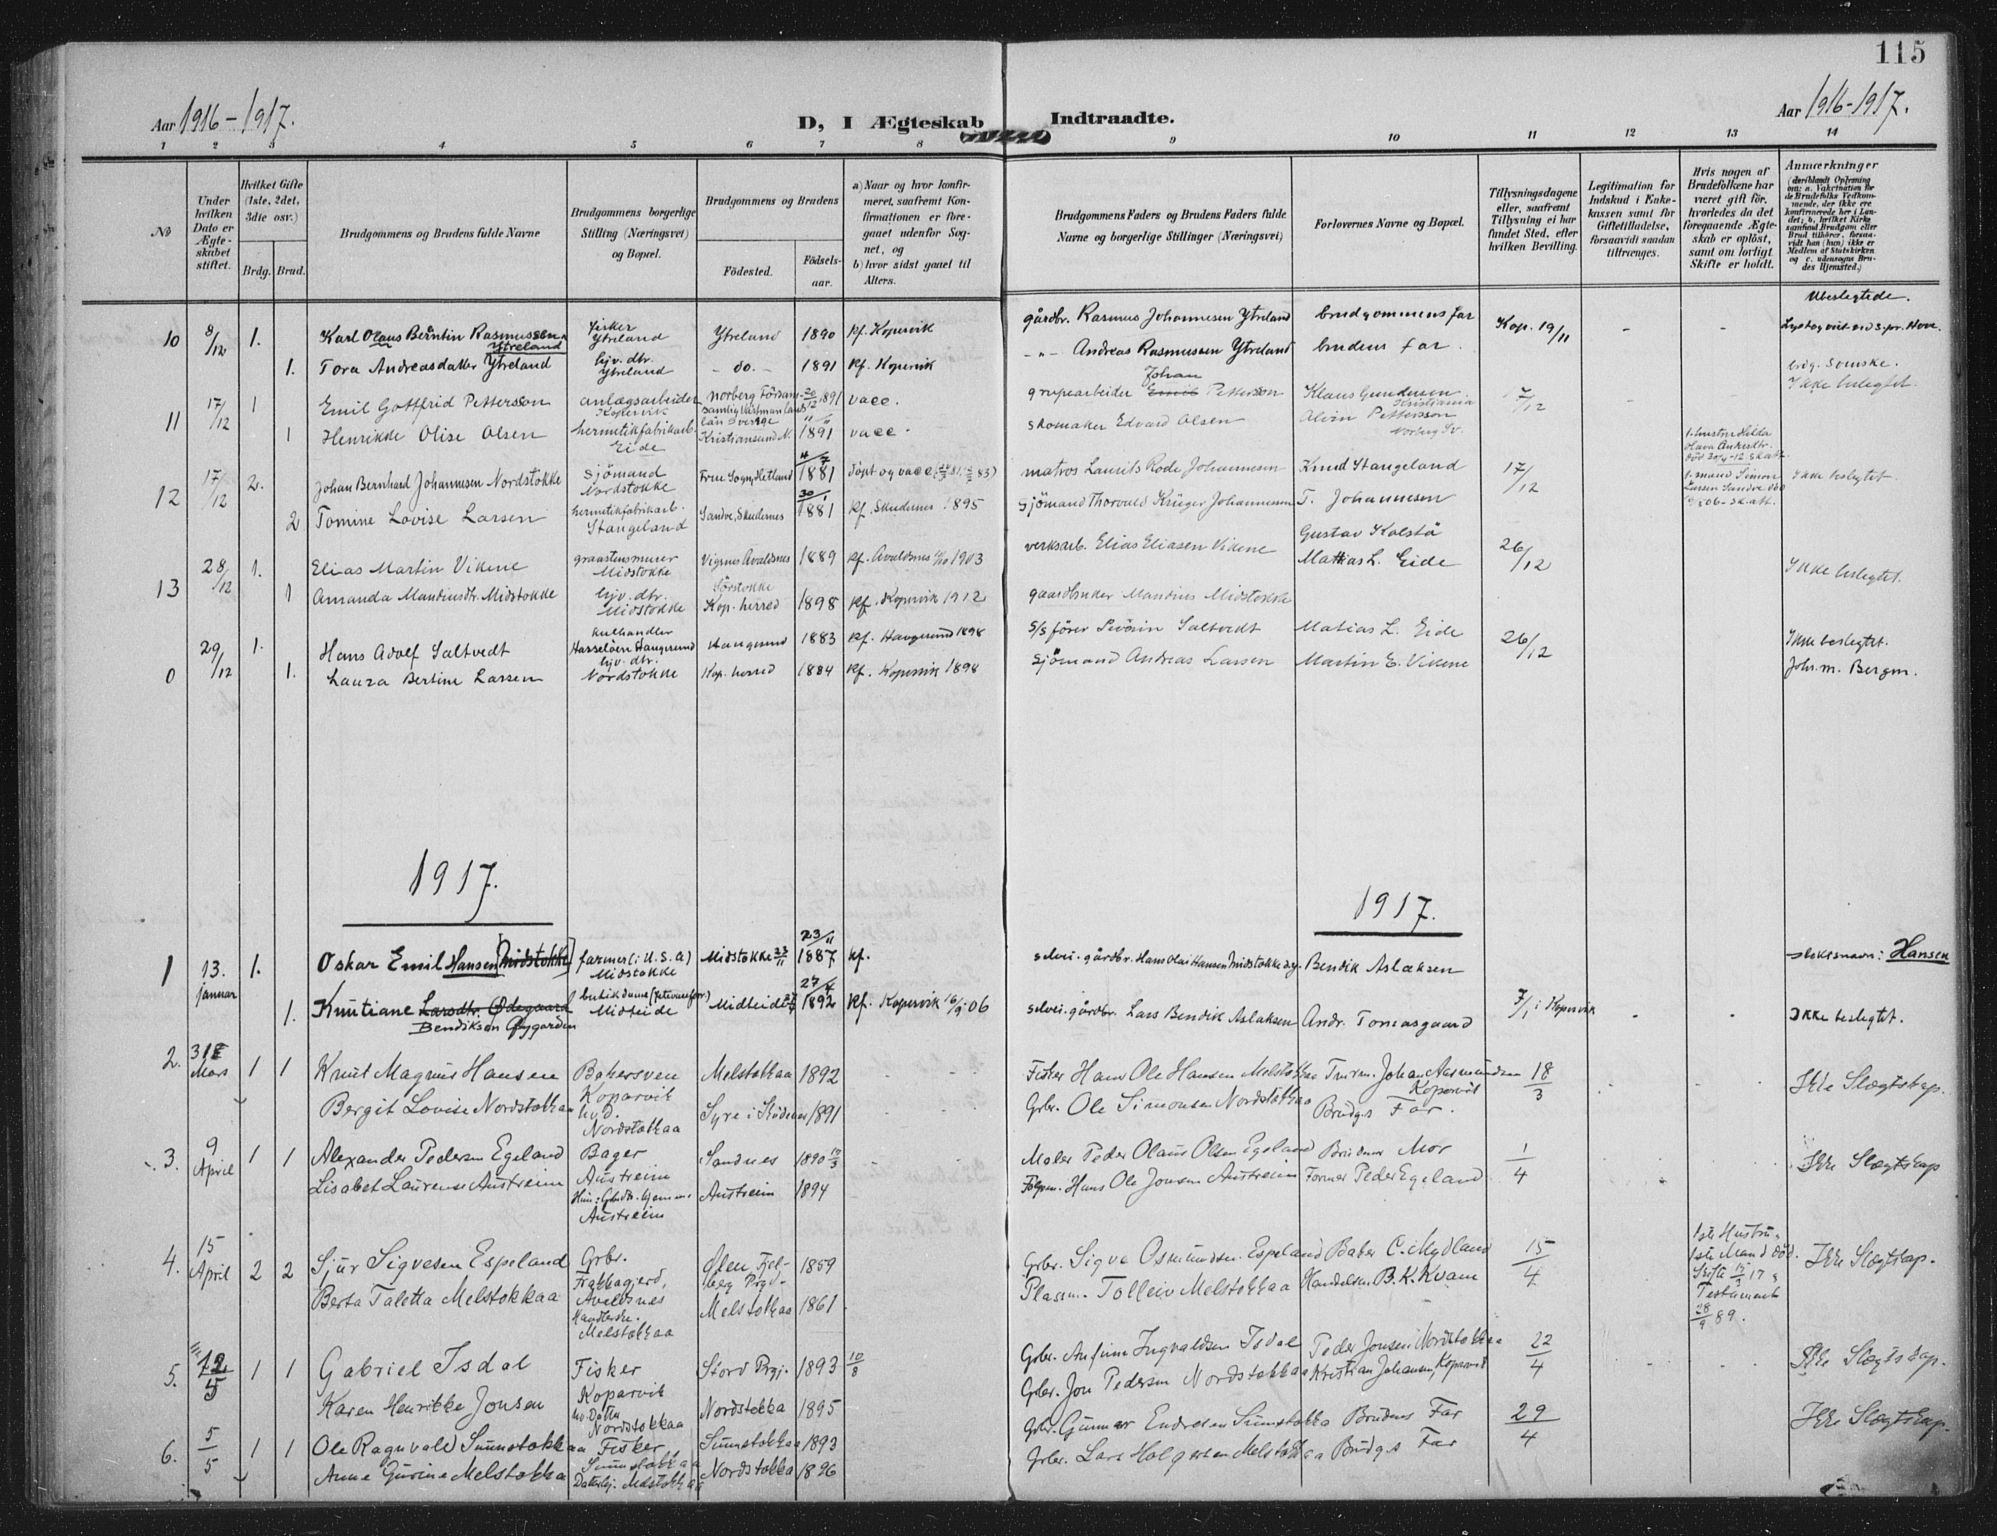 115
Aar 1916-1917.
D, I Ægteskab Indtraadte.
Aar 1916-1917.
1 2 3 4 5 6 7 8 9 10 11 12 13 14
No
Under hvilken Dato er Ægteskabet stiftet.
Hvilket Gifte (1ste, 2det, 3die osv.)
Brdg. Brud.
Brudgommens og Brudens fulde Navne
Brudgommens borgerlige Stilling (Næringsvei) og Bopæl.
Brudgommens og Brudens
Födested.
Födselsaar.
a) Naar og hvor konfirmeret, saafremt Konfirmationen er foregaaet udenfor Sognet, og
b) hvor sidst gaaet til Alters.
Brudgommens Faders og Brudens Faders fulde Navne og borgerlige Stillinger (Næringsvei)
Forlovernes Navne og Bopæl.
Tillysningsdagene eller, saafremt Tillysning ei har fundet Sted, efter hvilken Bevilling.
Legitimation for Indskud i Enkekassen samt for Giftetilladelse, forsaavidt saadan tiltrænges.
Hvis nogen af Brudefolkene har været gift för, hvorledes da det foregaaende Ægteskab er oplöst, samt om lovligt Skifte er holdt.
Anmærkninger
(deriblandt Oplysning om: a. Vakcination for de Brudefolks Vedkommende, der ikke ere konfirmerede her i Landet; b. hvilket Kirkesamfund Brudgom eller Brud tilhörer, forsaavidt han (hun) ikke er Medlem af Statskirken og c. udensogns Brudes Hjemsted.)
10 8/12 1. Karl Olaus Berntin Rasmussen Ytreland fisker Ytreland Ytreland 1890 kf. Kopervik gårdbr. Rasmus Johannesen Ytreland brudgommens far Kop. 19/11 - - Ubeslegtede.
1. Tora Andreasdatter Ytreland hjv. dtr. Ytreland - do. - 1891 kf. Kopervik -"- Andreas Rasmussen Ytreland brudens far.
11 17/12 1 Emil Gottfrid Pettersson anlægsarbeider Kopervik Norberg 20/12 1891 vacc. grupearbeider Johan Emil Pettersson Klaus Gundersen Kristiania 7/12 brdg. Svenske. Ikke beslegtet.
1 Henrikke Olise Olsen hermetikfabrikarb. Eide Kristiansund N. 1891 vacc. skomaker Edvard Olsen Alvin Pettersson Norberg Sv.
12 17/12 2. Johan Bernhard Johannesen Nordstokke sjömand Nordstokke 4/7 1881 döpt og vacc. matros Laurits Rode Johannesen Knud Stangeland 17/12 Ikke beslegtet.
2 Tomine Lovise Larsen hermetikfabrikarb. Stangeland Sandve, Skudenes 30/1 1881 kf. Skudenes 1895 sjömand Thorvald Krüger Johannesen T. Johannesen
13 28/12 1. Elias Martin Vikene graastensmurer Midstokke Avaldsnes 1889 kf. Avaldsnes 1903 verksarb. Elias Eliasen Vikene Gustav Kolstö Mathias L. Eide 26/12 Ikke beslegtet.
1 Amanda Mandiusdtr. Midstokke hjv. dtr. Midstokke Sörstokke Kop. herred 1898 kf. Kopervik 1912 gaardbruker Mandius Midstokke
0 29/12 1. Hans Adolf Saltvedt kulhandler Hasseløen Haugesund Haugesund 1883 kf. Haugesund 1898 S/S förer Severin Saltvedt Matias L. Eide 26/12 Ikke beslegtet.
1. Laura Bertine Larsen hjv. dtr. Nordstokke Kop. herred 1884 kf. Kopervik 1898 sjömand Andreas Larsen Martin E. Vikene Joh. m. Bergm.
1917. 1917.
1 13. januar 1. Oskar Emil Hansen Midstokke farmer (i U.S.A) Midstokke Midstokke 23/11 23/11 1887 kf. selvei. gårdbr. Hans Olai Hansen Midstokke Bendik Aslaksen slektsnavn: Hansen
1. Knutiane Larsdtr. Ødegaard Bendiksen Øygarden butikdame Midteide Midteide 27/4 1892 kf. Kopervik 16/9 06 selvei. gårdbr. Lars Bendik Aslaksen Andr. Tomasgaard 7/1 i Kopervik - - Ikke beslegtet.
2. 31 Mars 1 1 Knut Magnus Hansen Bakersven Koparvik Melstokkaa 1892 - - - Fisker Hans Ole Hansen Melstokkaa Johan Aasmundsen Koparvik 18/3 Ikke Slægtskap.
Bergit Lovise Nordstokkaa Nordstokkaa Syre i Skudenes 1891 - - - Grbr. Ole Simonsen Nordstokkaa Brudg.s Far.
3. 9 April 1 1 Alexander Pedersen Egeland Bager Austreim Sandnes 1890 19/3 Maler Peder Olaus Olsen Egeland Brudens Mor 1/4 Ikke Slægtskap
Lisabet Laurense Austreim Austreim Austreim 1894 Hans Ole Jonsen Austreim Former Peder Egeland
4. 15 April 2 2 Sjur Sigvesen Espeland Grbr. Avaldsnes Ølen Fjelberg Prgd. 1859 Grbr. Sigve Osmundsen Espeland Baker C. Mydland 15/4 1ste Hustru, 1ste Mand död. Skifte 15/3 17, Testament 28/9 89. Ikke Slægtskap.
Berta Taletta Melstokkaa Handlerske. Melstokkaa Melstokkaa 1861 Plassm. Tolleiv Melstokkaa Handelsm. B. K. Kvam
5. 12/5 1 1 Gabriel Isdal Fisker Koparvik Stord Prgj. 1893 10/8 Grbr. Anfinn Ingvaldsen Isdal Peder Jonsen Nordstokkaa 22/4 Ikke Slægtskap.
Karen Henrikke Jonsen Nordstokkaa Nordstokka 1895 Grbr. Jon Pedersen Nordstokkaa Kristian Johansen, Koparvik
6. 5/5 1 1 Ole Ragnvald Sunnstokkaa Fisker Sunnstokkaa Sunnstokkaa 1893 Grbr. Gunnar Endresen Sunnstokka Brudens Far 29/4 Ikke Slægtskap.
Anne Gurine Melstokka Melstokkaa Nordstokka 1896 Grbr. Lars Holgersen Melstokkaa Brudg.s Far